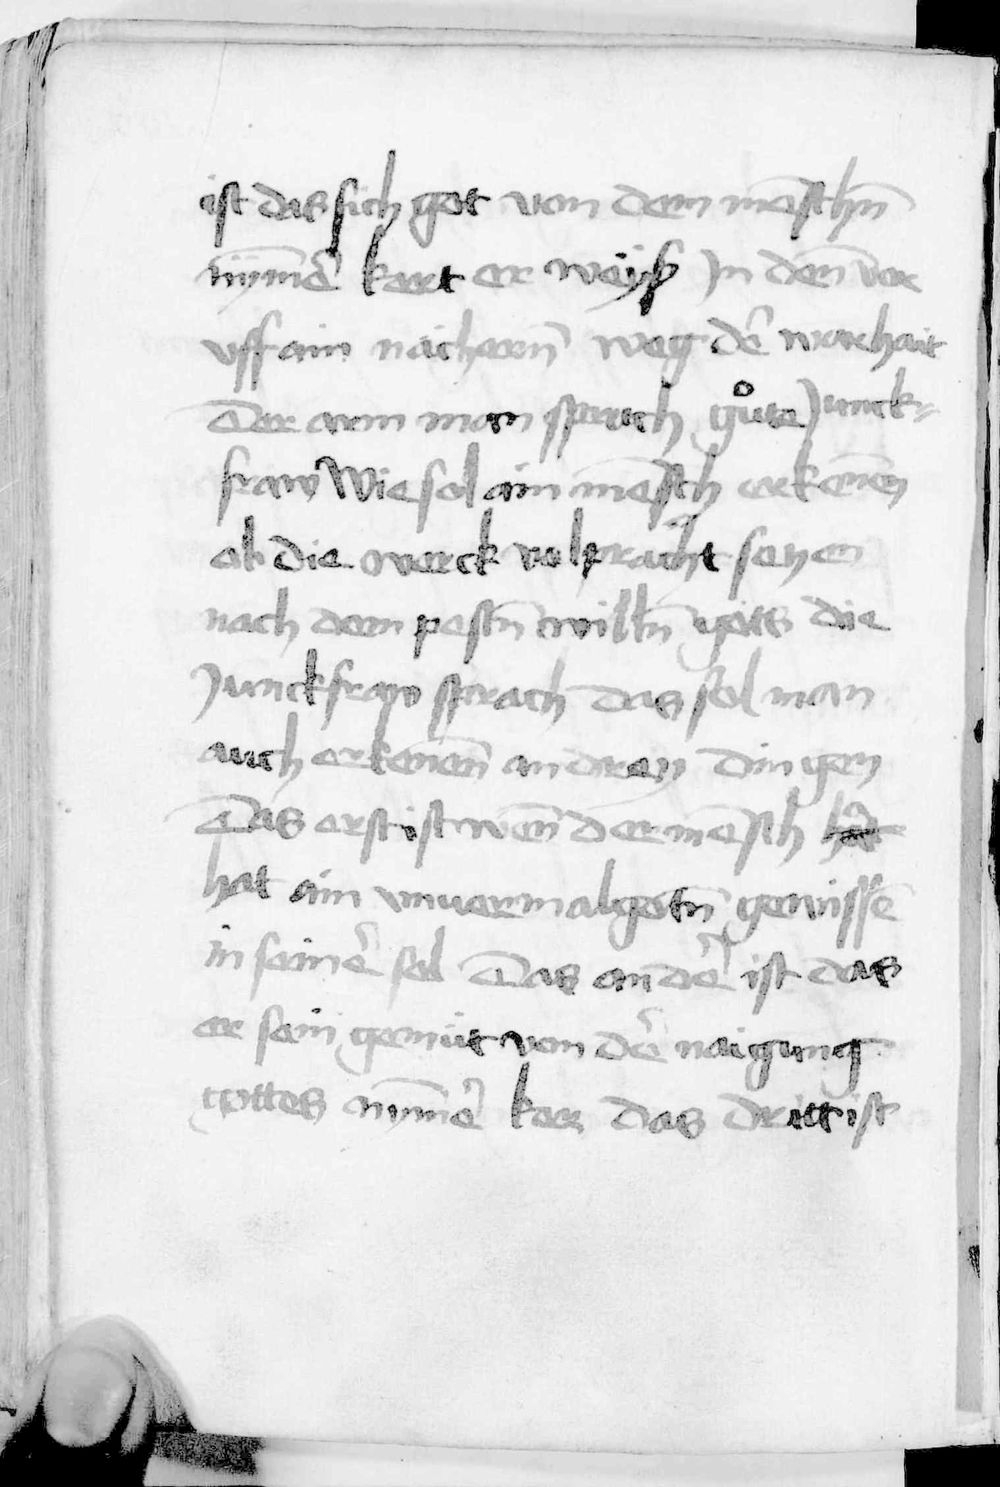 ist das sich got von dem mēschn̄
nȳmē kert er weyß Jn den̄ ver
vff ain nachern̄ weg dē warhait
Der arm man sprach gůte Junck⸗
fraw Wie sol ain mēsch erkenen̄
ob die werck volpracht seyen
nach dem pestn̄ willn̄ gots die
Junckfraw sprach das sol man
auch erkenen̄ an dreyn dingen
Das erst ist wen̄ der mēsch hat
hat ain vnuermalgetn̄ gewissē
in seinē sel Das andē ist das
er sein gemüt von dē naigung
gottes nymē ker das dritt ist